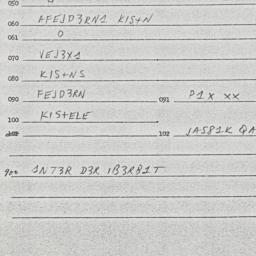 050
060 AFEJD3RN1 KIS+N
061 O
070 VEJ3X1
080 KIS+NS
090 FEJD3RN 091 P1X XX
100 KIS+ELE
102 JA581K QA
900 1NT3R D3R 1B3RB1T